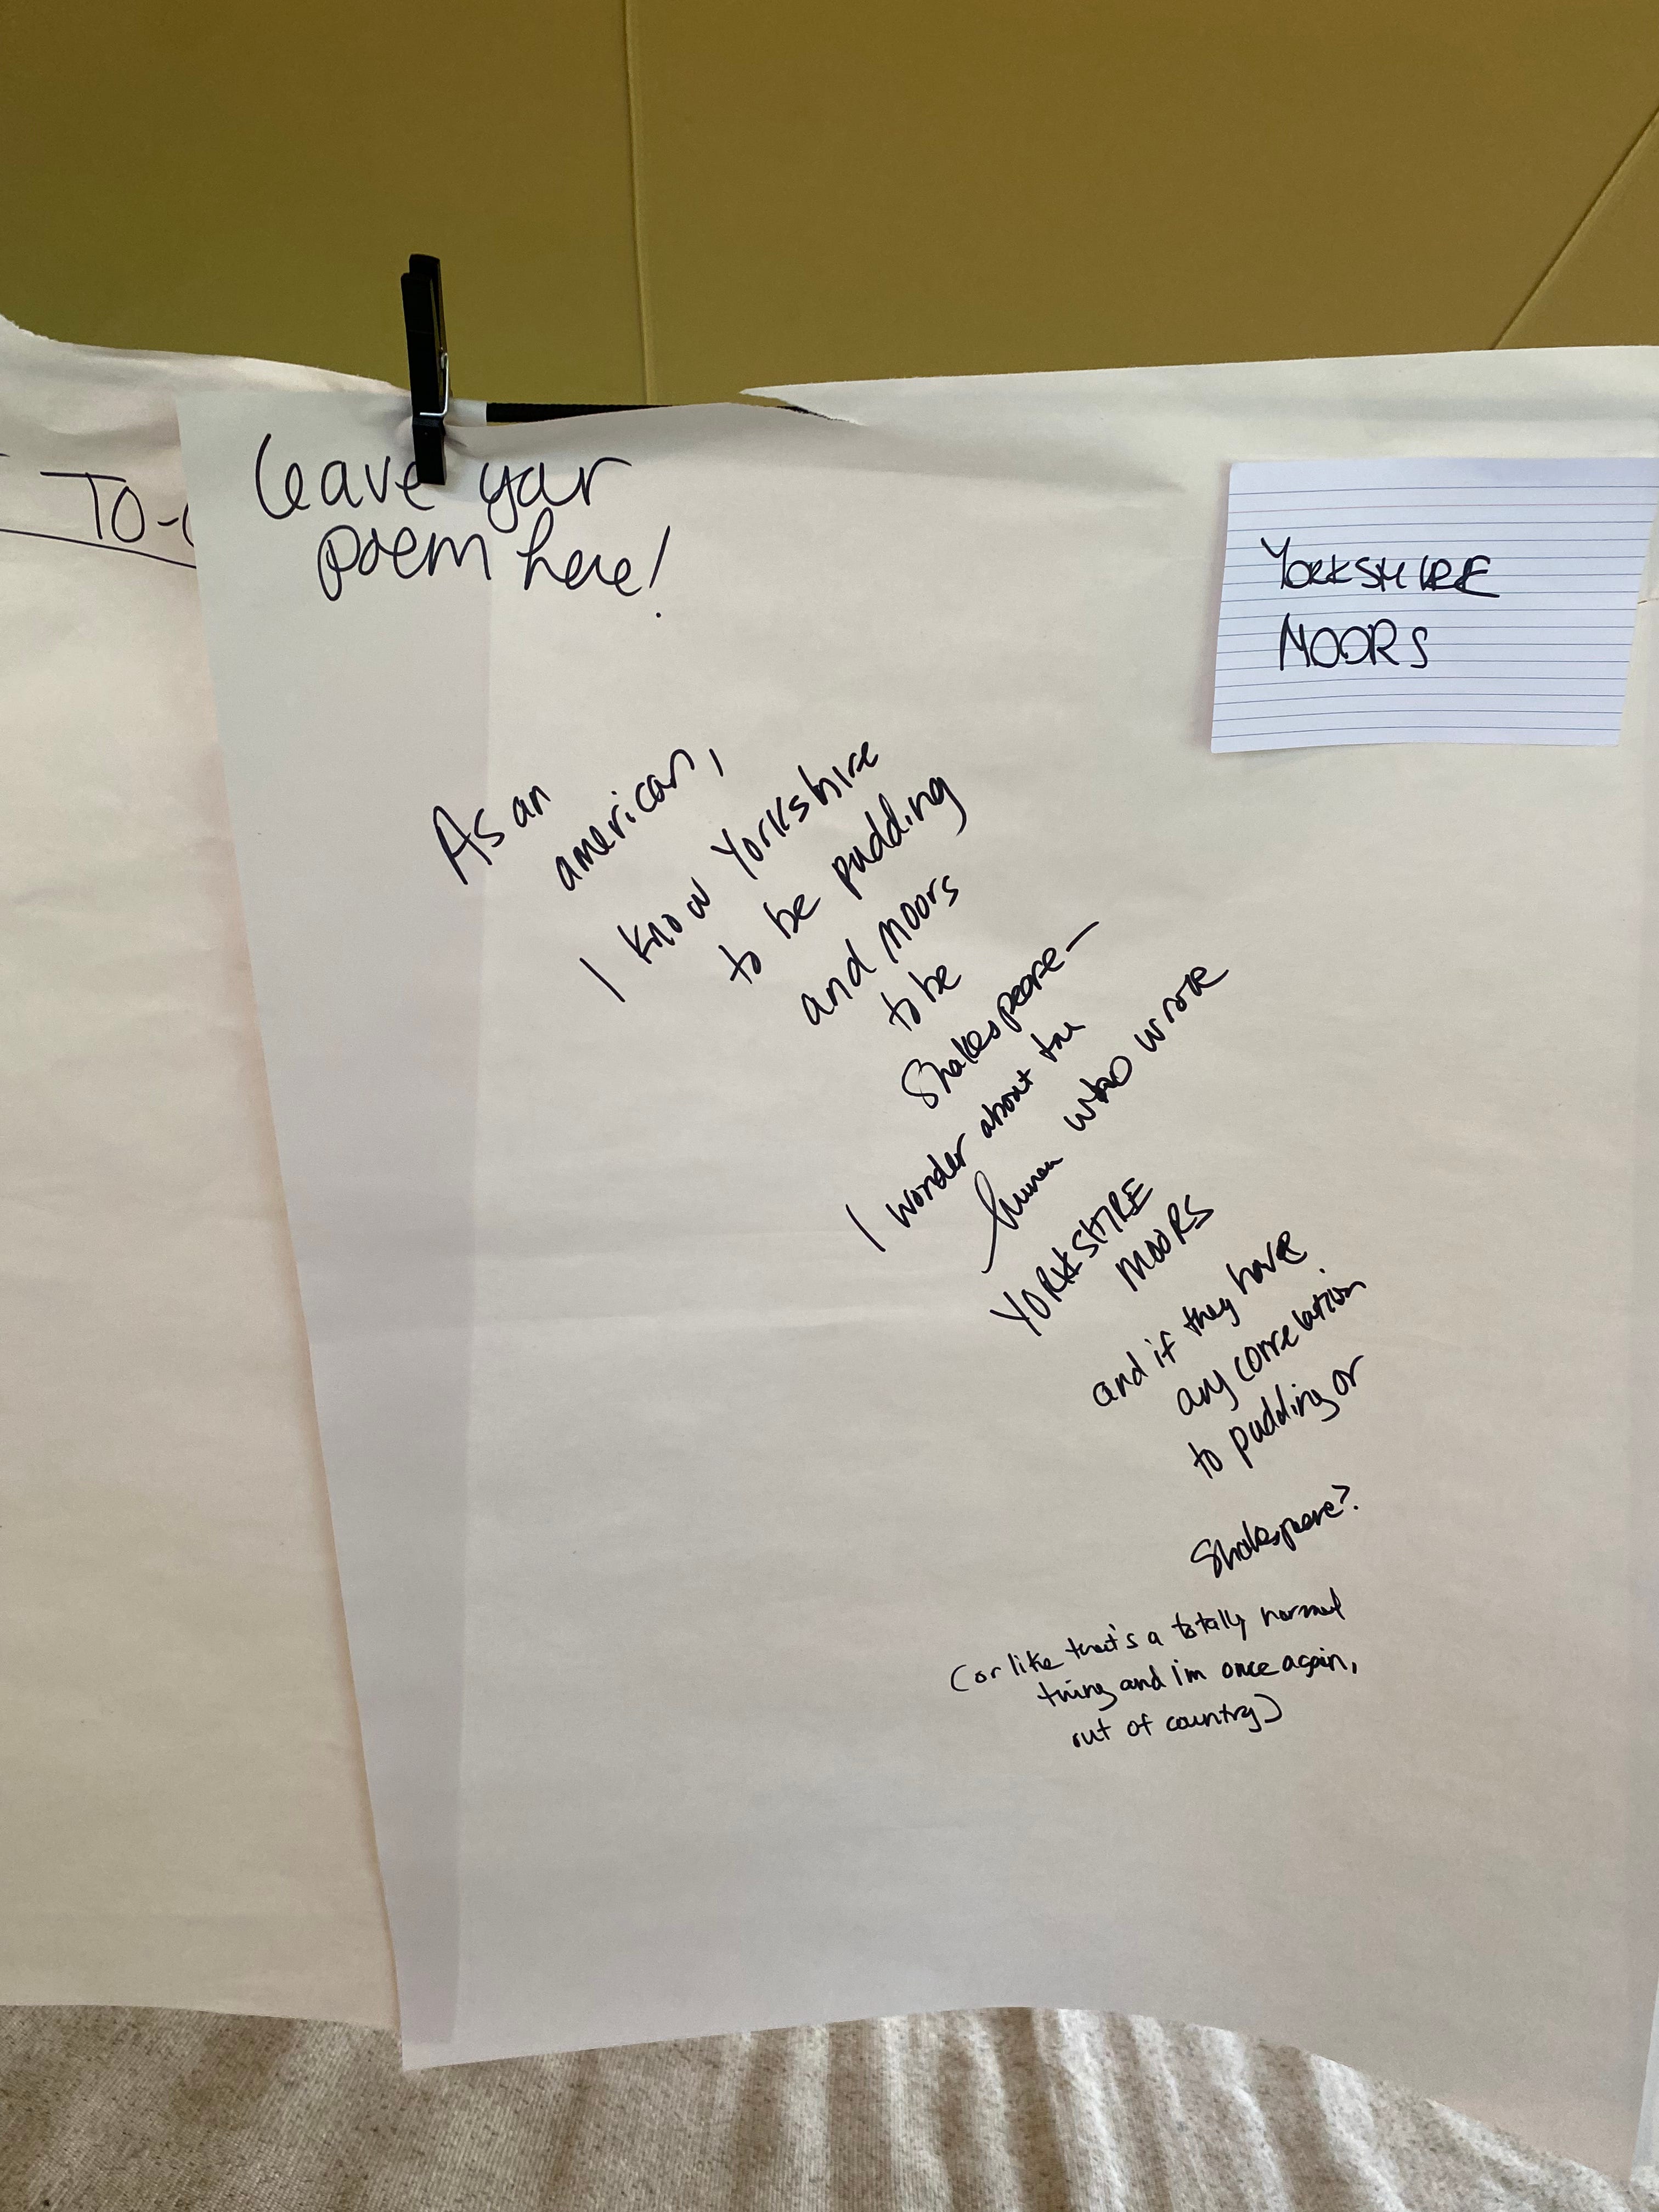 TO-
leave your
poem here!
YORKSHIRE
MOORS
As an
american,
I know Yorkshire
to be pudding
and moors
to be
Shakespeare—
I wonder about the
human who wrote
YORKSHIRE
MOORS
and if they have
any correlation
to pudding or
Shakespeare?
(or like that's a totally normal
thing and i'm once again,
out of country)